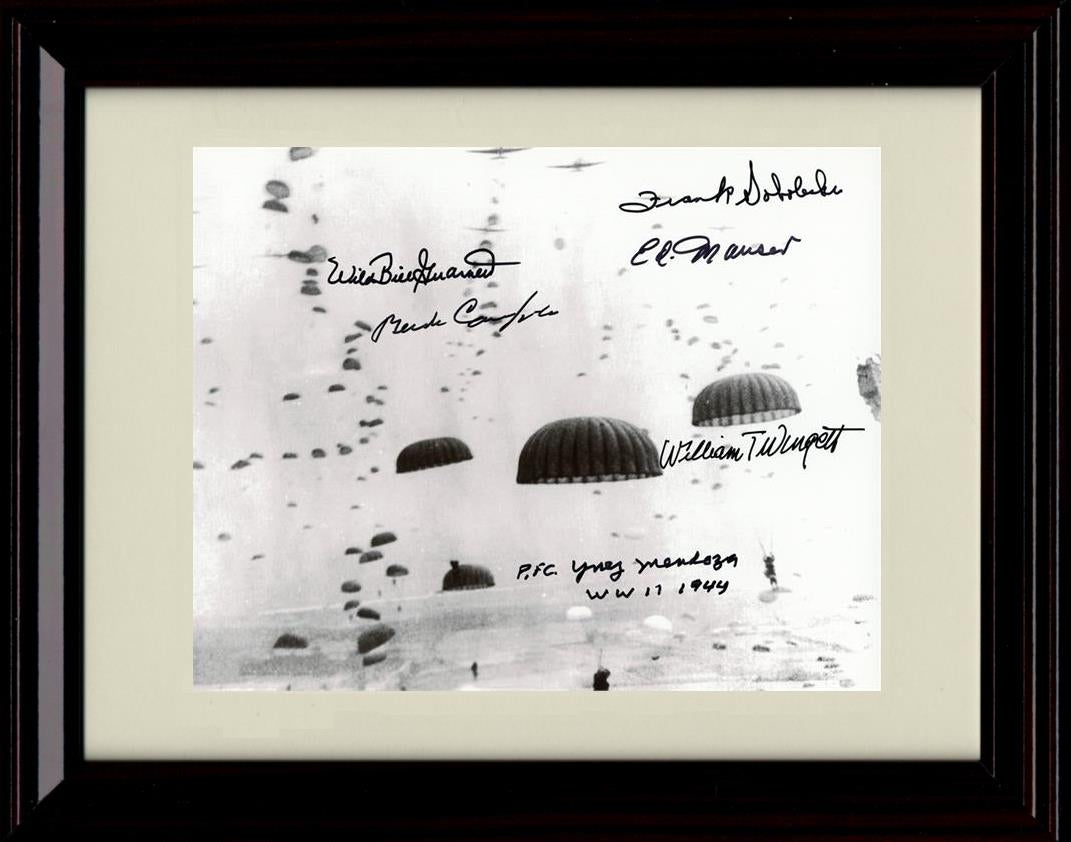 Frank Soboleski
Ed. Mauser
Wild Bill Guarnere
Buck Compton
William T Wingett
P.F.C. Ynez Mendoza
WW 11 1944